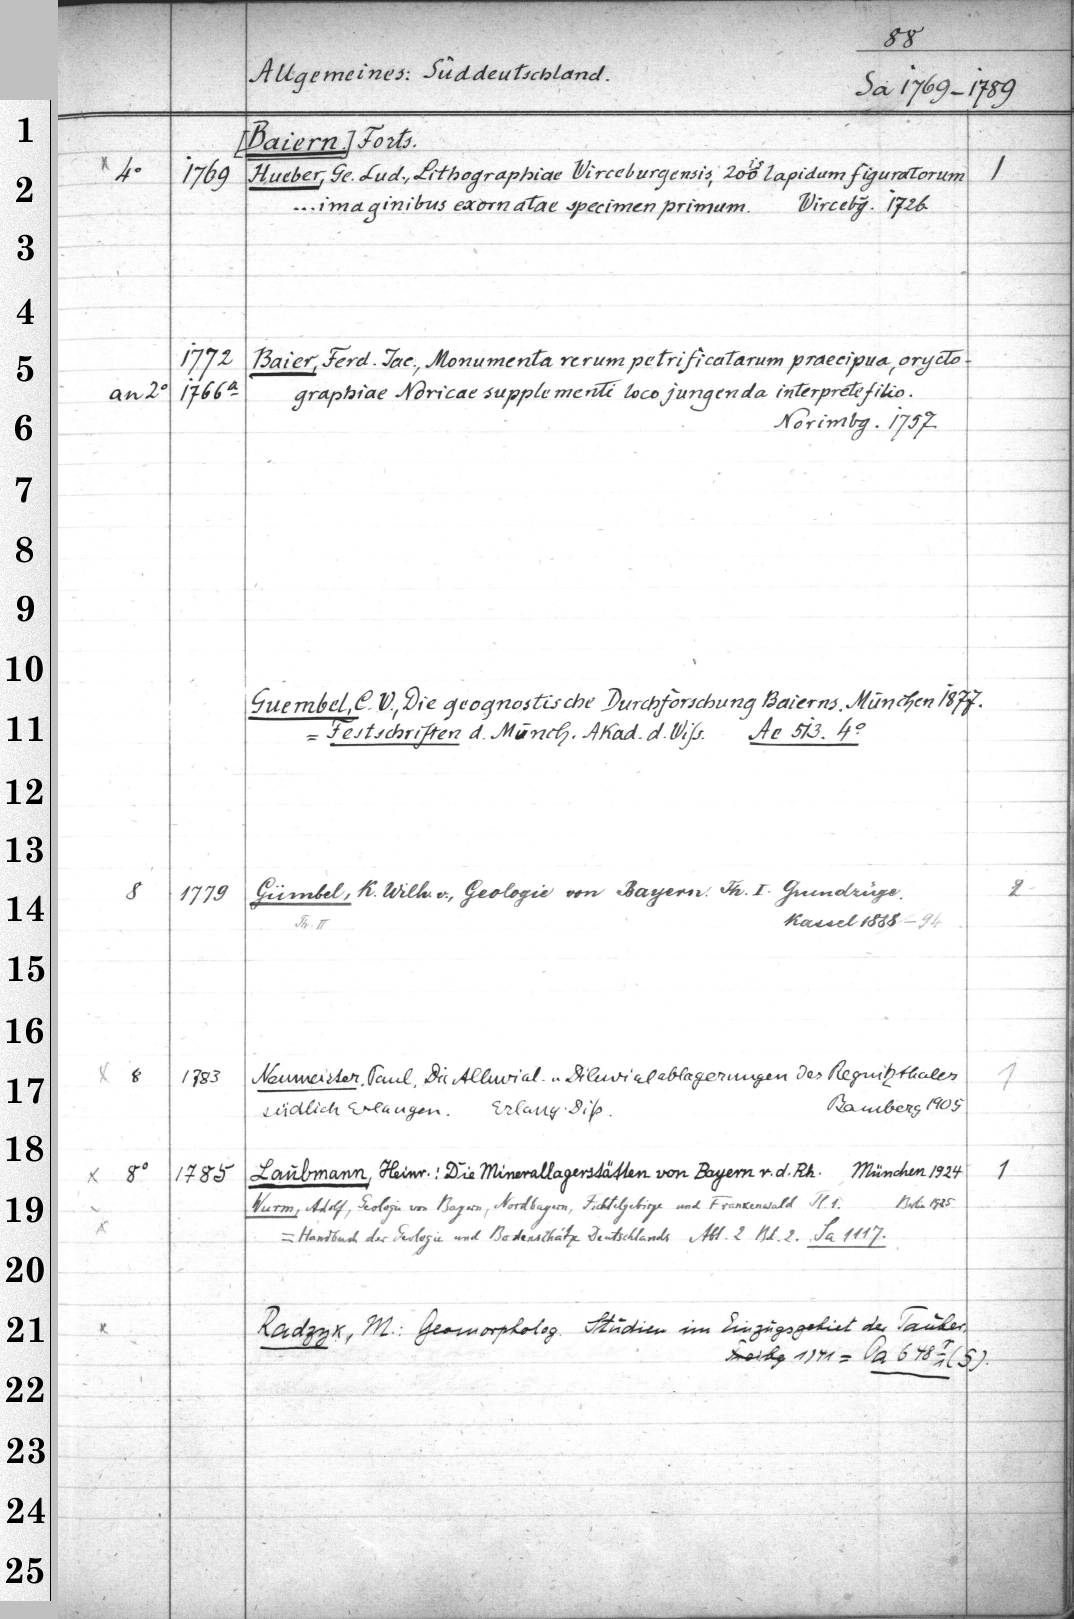 88
Allgemeines: Süddeutschland.
Sa 1769–1789
[Baiern.] Forts.
x 4° 1769 Hueber, Ge. Lud., Lithographiae Wirceburgensis, 200 is lapidum figuratorum 1
...imaginibus exornatae specimen primum. Wircebg. 1726
1772 Baier, Ferd. Jac., Monumenta rerum petrificatarum praecipua, orycto-
an 2° 1766a graphiae Noricae supplementi loco jungenda interprete filio.
Norimbg. 1757
Guembel, C. W., Die geognostische Durchforschung Baierns. München 1877.
= Festschriften d. Münch. Akad. d. Wiss. Ac 513. 4°
8 1779 Gümbel, K. Wilh. v., Geologie von Bayern. Th. I. Grundzüge. 2
Th. II Kassel 1888–94
x 8 1783 Neumeister, Paul, Die Alluvial- u. Diluvialablagerungen des Regnitzthales 1
südlich Erlangen. Erlang. Diss. Bamberg 1905
x 8° 1785 Laubmann, Heinr.: Die Minerallagerstätten von Bayern r. d. Rh. München 1924 1
Wurm, Adolf, Geologie von Bayern, Nordbayern, Fichtelgebirge und Frankenwald Tl 1. Berlin 1925
x = Handbuch der Geologie und Bodenschätze Deutschlands Abt. 2 Bd. 2. Sa 1117.
x Radzyk, M.: Geomorpholog. Studien im Einzugsgebiet der Tauber.
1941 = Pa 648 (5).
1
2
3
4
5
6
7
8
9
10
11
12
13
14
15
16
17
18
19
20
21
22
23
24
25